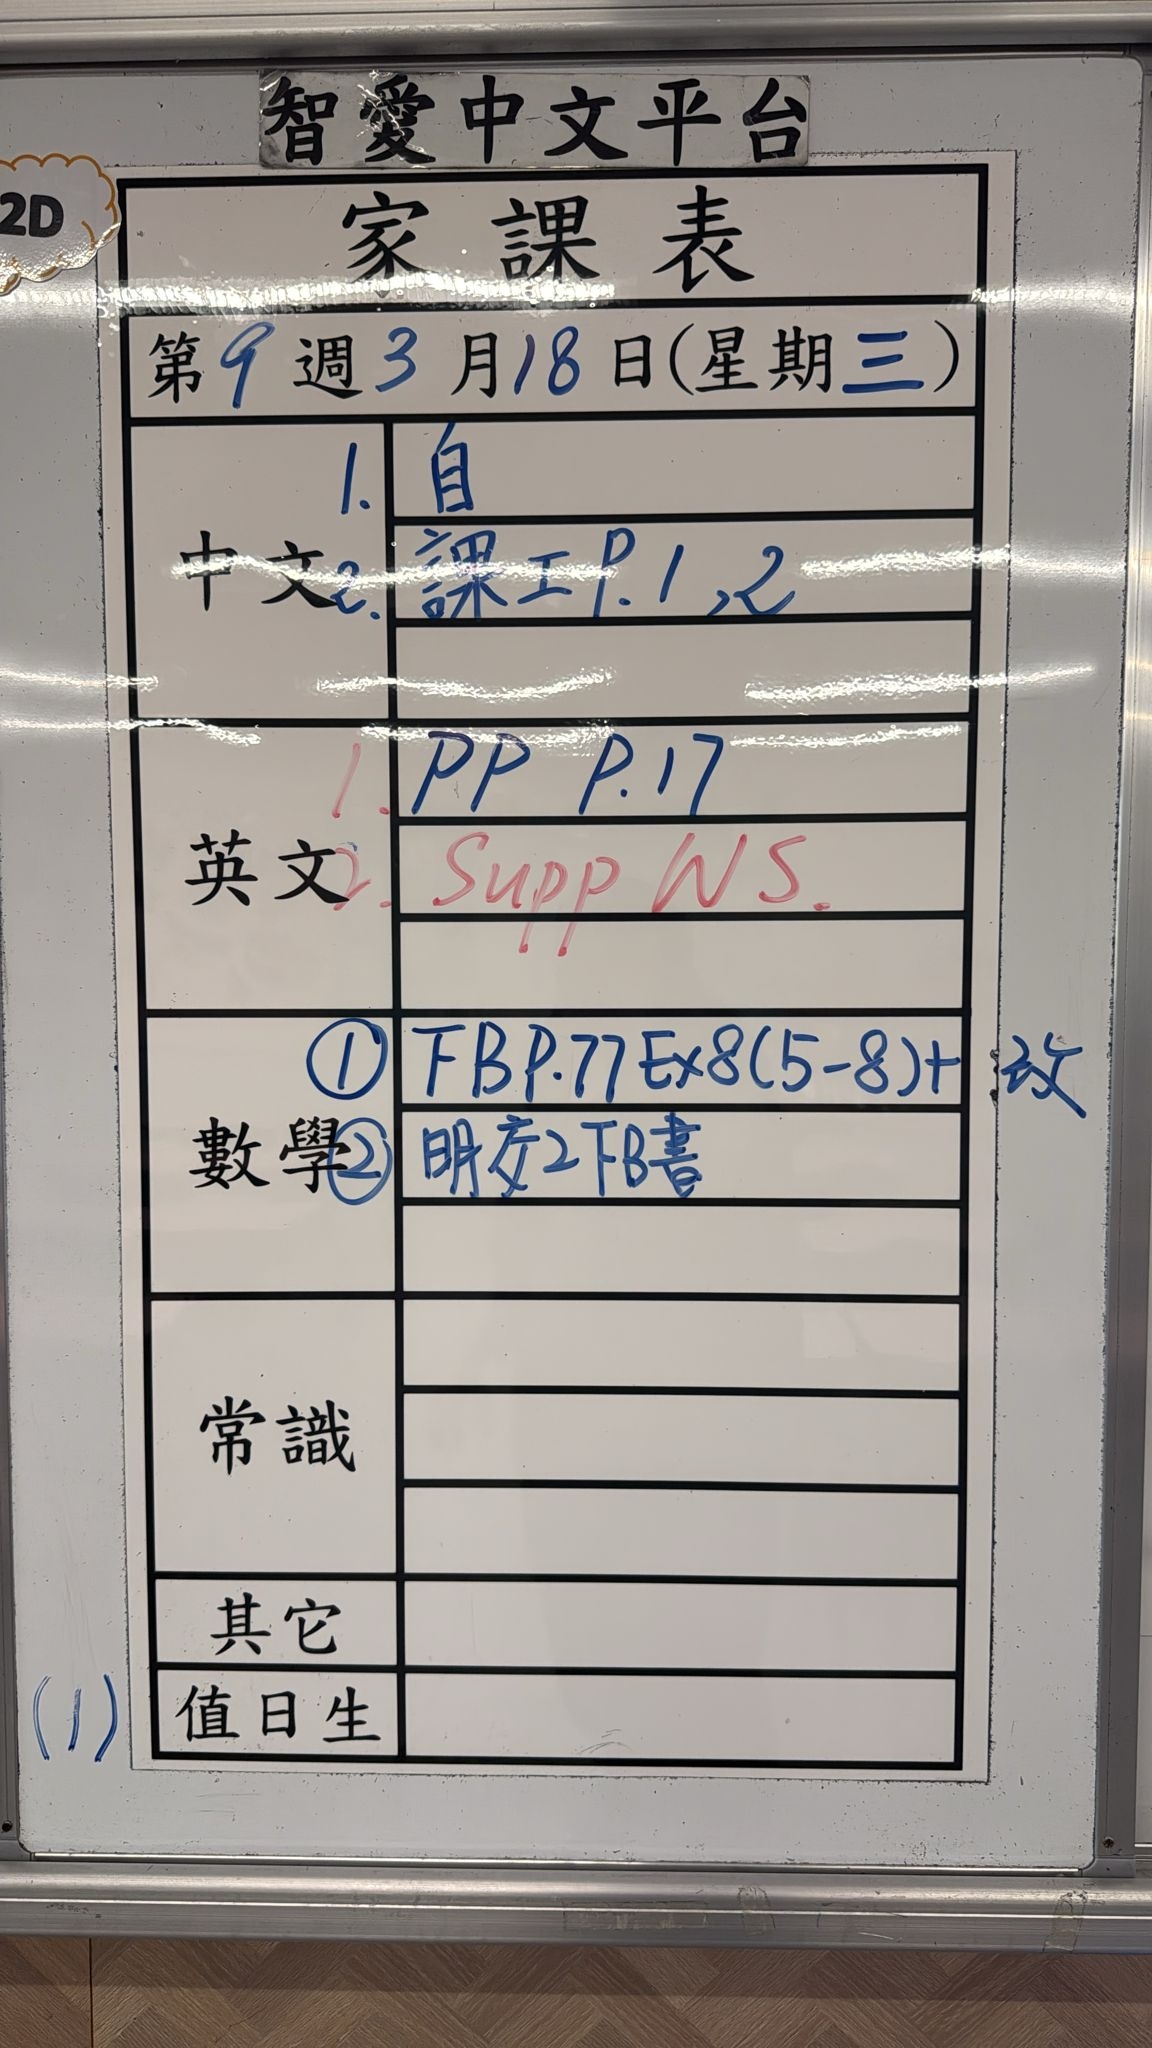 智愛中文平台
2D
家課表
第9週3月18日(星期三)
中文
1. 自
2. 課工P.1,2
英文
1. PP P.17
2. Supp WS.
數學
① 下BP.77Ex8(5-8)+改
② 明交2下B書
常識
其它
值日生
(1)